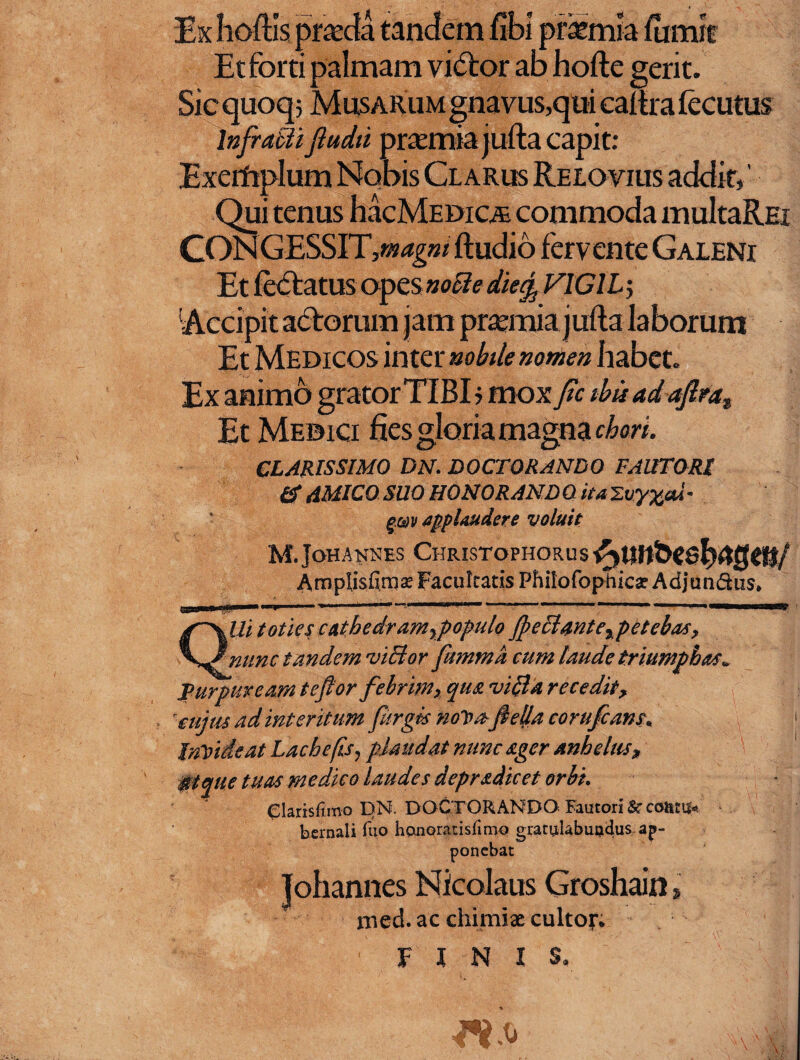 Ex hoſtis præda tandem ſibi præmia ſumit
Et forti palmam victor ab hoſte gerit.
Sic quoq; MusARuM gnavus, qui caſtra ſecutus
Infracti ſtudii præmia juſta capit:
Exemplum Nobis CLARus RELOVIUS addit,
Qui tenus hâc MEDICÆ commoda multa REI
CONGESSIT, magni ſtudiô fervente GALENI
Et ſectatus opes nocte dieq; VIGIL;
Accipit actorum jam præmia juſta laborum
Et MEDICOS inter nobile nomen habet.
Ex animô grator TIBI; mox ſic ibis ad aſtra,
Et MEDICI fies gloria magna chori.
CLARISSIMO DN. DOCTORANDO FAUTORI
& AMICO SUO HONORANDO ita Συγχαί-
ρων applaudere voluit
M. JOHANNES CHRISTOPHORUS Hundeshagen/
Amplisſimæ Facultatis Philoſophicæ Adjunctus.
QUi toties cathedram, populo ſpectante, petebas,
nunc tandem victor ſummâ cum laude triumphas.
Purpuream teſtor febrim, quæ victa recedit,
cujus ad interitum ſurgis nova ſtella coruſcans.
Invideat Lacheſis, plaudat nunc æger anhelus,
atque tuas medico laudes deprædicet orbi.
Clarisſimo DN. DOCTORANDO Fautori & contu-
bernali ſuo honoratisſimo gratulabundus ap-
ponebat
Johannes Nicolaus Groshain,
med. ac chimiæ cultor.
FINIS.